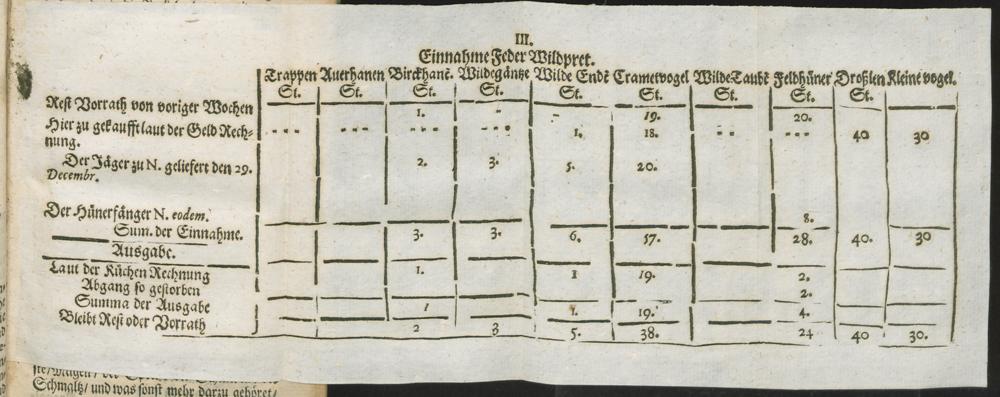 III.
Einnahme Feder Wildpret.
Trappen Auerhanen Birckhanē. Wildegäntze Wilde Endē Crametvogel Wilde Taubē Feldhüner Droßlen Kleine vogel.
St. St. St. St. St. St. St. St. St.
Rest Vorrath von voriger Wochen 1. 19. 20.
Hier zu gekaufft laut der Geld Rech- 1. 18. 40 30
nung.
Der Jäger zu N. geliefert den 29. 2. 3. 5. 20.
Decembr.
Der Hünerfänger N. eodem. 8.
Sum. der Einnahme. 3. 3. 6. 57. 28. 40. 30
Ausgabe.
Laut der Küchen Rechnung 1. 1 19. 2.
Abgang so gestorben 2.
Summa der Ausgabe 1 1. 19. 4.
Bleibt Rest oder Vorrath 2 3 5. 38. 24 40 30.
Schmaltz/ und was sonst mehr darzu gehöret/